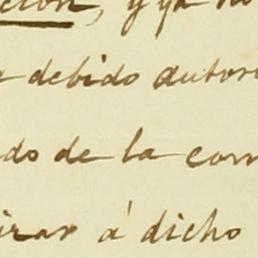 cion, y ya no
debido autori
do de la com
irar á dicho